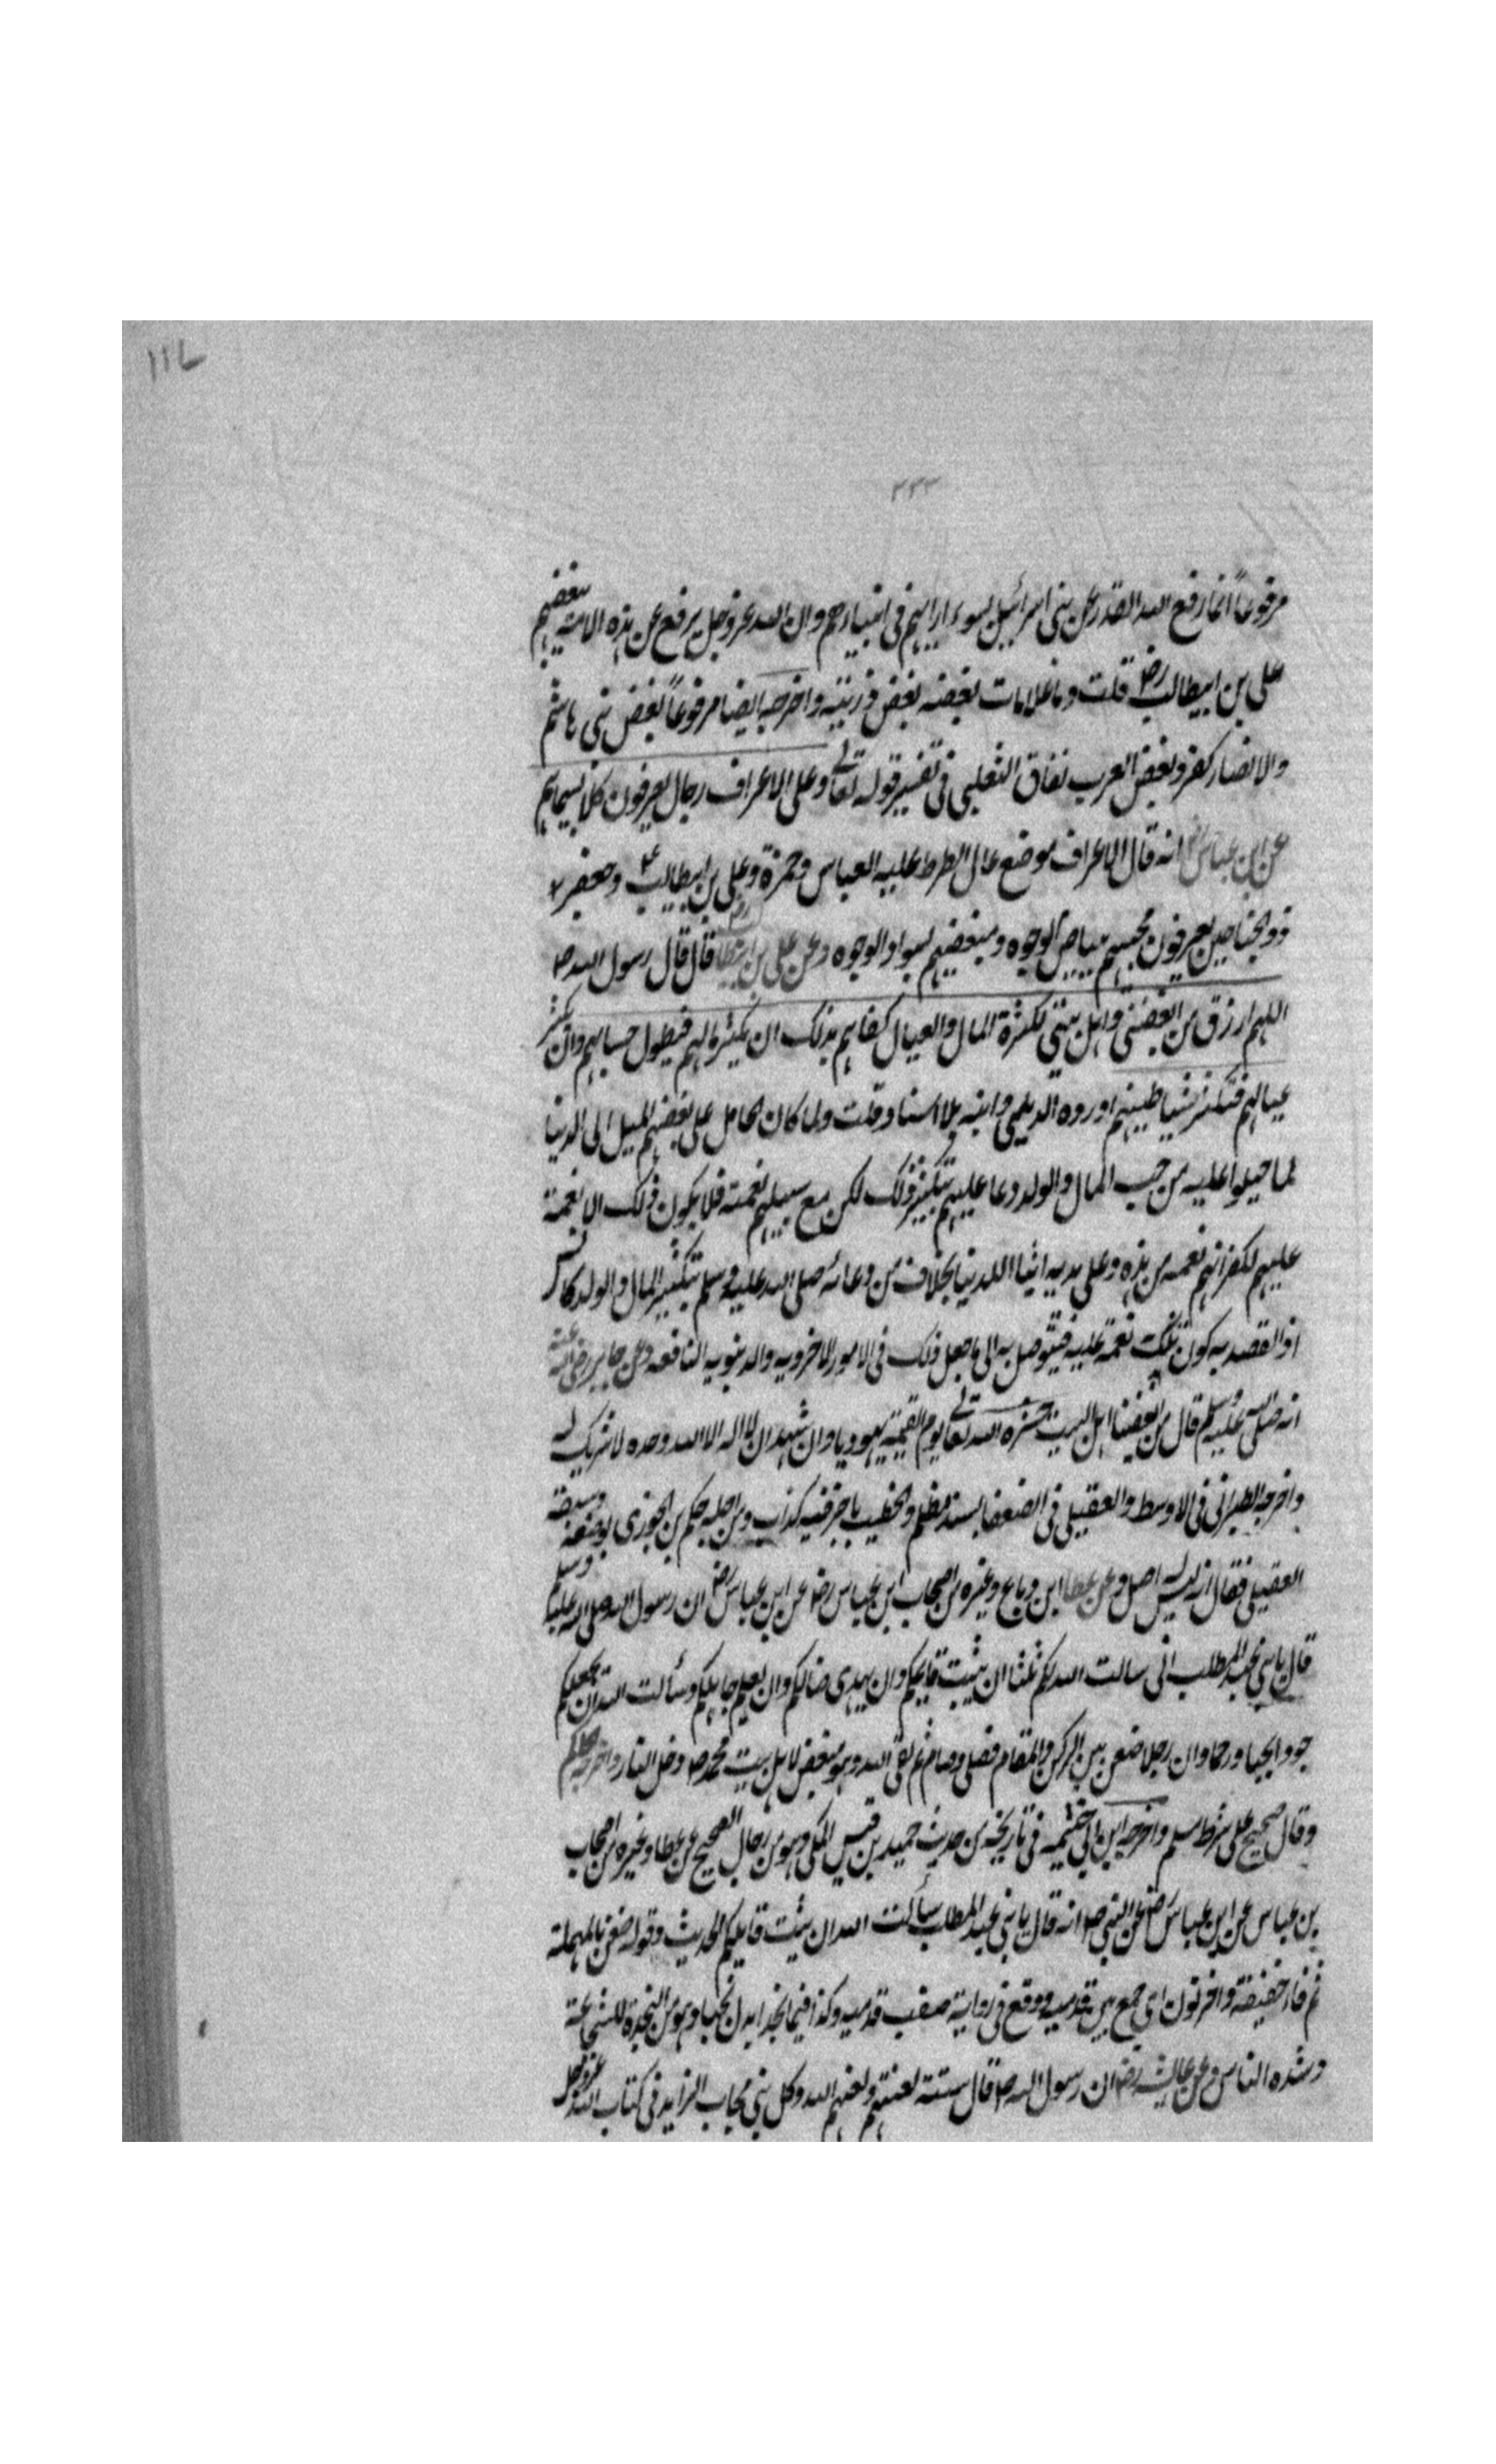 ١١٧
٢٣٣
مرفوعاً انما رفع الله القدر عن بنى اسرائيل بسوء ارايهم فى انبياءهم وان الله عزوجل يرفع عن هذه الامة ببغضهم
على بن ابيطالب رضـ قلت وما علامات بغضه بغض ذريته واخرجه ايضا مرفوعاً بغض بنى هاشم
والانصار كفر وبغض العرب نفاق الثعلبى فى تفسير قوله تعالى وعلى الاعراف رجال يعرفون كلا بسيماهم
عن ابن عباس انه قال الاعراف موضع عال الصراط عليه العباس وحمزة وعلى بن ابيطالب وجعفر
ذو الجناحين يعرفون محبيهم ببياض الوجوه ومبغضيهم بسواد الوجوه وعن على بن قال قال رسول الله صـ
اللهم ارزق من ابغضنى واهل بيتى كثرة المال والعيال كفاهم بذلك ان يكثر مالهم فيطول حسابهم وان تكثر
عيالهم فتكثر شياطينهم اورده الديلمى وابنه بلا اسناد قلت ولما كان الحامل على بغضهم الميل الى الدنيا
لما جبلوا عليه من حب المال والولد دعا عليهم بتكثير ذلك لكن مع سلبهم نعمته فلا يكون ذلك الا نقمة
عليهم لكفرانهم نعمه من هذه وعلى يديه ايثا اللدنيا بخلاف من دعا له صلى الله عليه وسلم بتكثير المال والولد كانس
اذ القصد به كون تلك نعمة عليه فيتوصل به الى ما جعل ذلك فى الامور الاخرويه والدنيويه النافعه وعن جابر رضى الله عنه
انه صلى الله عليه وسلم قال من ابغضنا اهل البيت حشره الله تعالى يوم القيمة يهوديا وان شهد ان لا اله الا الله وحده لا شريك له
واخرجه الطبرانى فى الاوسط والعقيلى فى الضعفا بسند مظلم والخطيب باخر فيه كذاب ومن اجله حكم بن الجوزى بوضعه وسبقه
العقيلى فقال انه ليس له اصل وعن عطا ابن رباع وغيره من اصحاب ابن عباس رضـ عن ابن عباس رضـ ان رسول الله صلى الله عليه وسلم
قال يا بنى عبد المطلب انى سالت الله لكم ثلثا ان يثبت قايمكم وان يهدى ضالكم وان يعلم جاهلكم وسألت الله ان يجعلكم
جودا نجبا ورحما وان رجلا ضعن بين الركن والمقام فصلى وصام ثم لقى الله وهو مبغض لاهل بيت محمد صـ دخل النار واخرجه الحاكم
وقال صحيح على شرط مسلم واخرجه ابن ابى خيثمه فى تاريخه من حديث حميد بن قيس المكى وهو من رجال الصحيح عن عطا وغيره من اصحاب
بن عباس عن ابن عباس رضـ عن النبى صـ انه قال يا بنى عبد المطلب سألت الله ان يثبت قايمكم الحديث وقوله ضفن بالمهملة
ثم فاء خفيفة واخر نون اى جمع بين قدميه ووقع فى رواية صفب قدميه وكذا فيما نجدا بدل نجبا وهو من النجدة للشجاعة
وشده الناس وعن عايشه رضـ ان رسول الله صـ قال ستة لعنتهم ولعنهم الله وكل نبى مجاب الزايد فى كتاب الله عزوجل